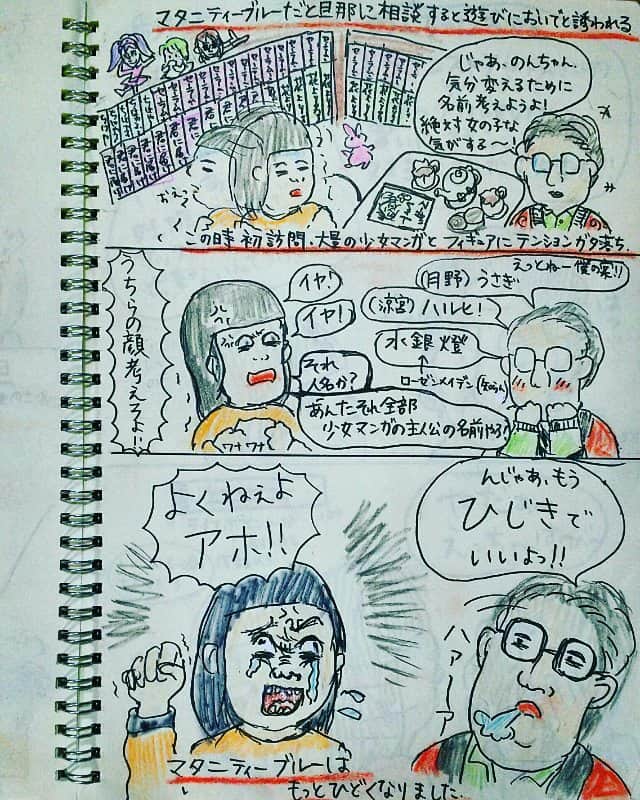 マタニティーブルーだと旦那に相談すると遊びにおいでと誘われる
じゃあ、のんちゃん、
気分変えるために
名前考えようよ!
絶対女の子な
気がする〜!
おえっ
この時初訪問、大量の少女マンガとフィギュアにテンションがタ落ち.
うちらの顔考えろよ!!
イヤ!
イヤ!
それ
人名か?
あんたそれ全部
少女マンガの主人公の名前やろ
ワナワナ
えっとねー僕の案り
(月野)うさぎ
(涼宮)ハルヒ!
水銀燈
↑
ローゼンメイデン
よくねぇよ
アホ!!
んじゃあ、もう
ひじきで
いいよっ!!
ハァーア
マタニティーブルーは
もっとひどくなりました.